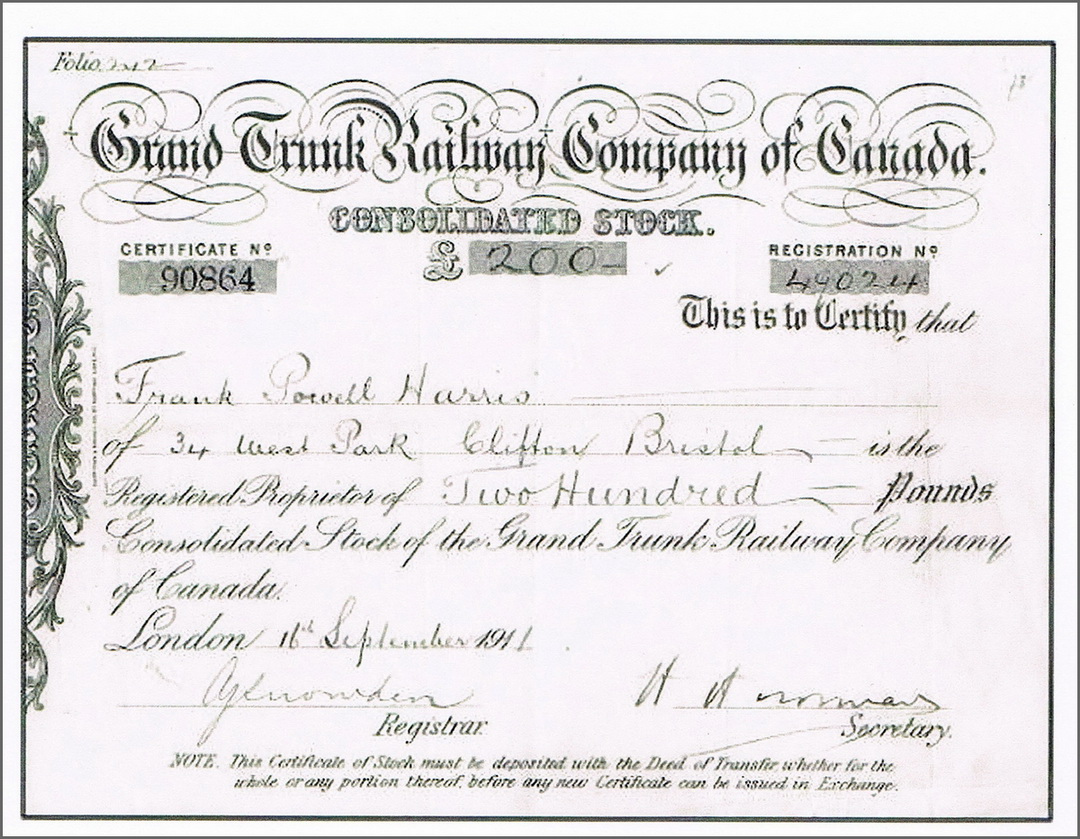 Folio 242
Grand Trunk Railway Company of Canada.
CONSOLIDATED STOCK.
CERTIFICATE Nº
90864
£ 200-
REGISTRATION Nº
49024
This is to Certify, that
Frank Powell Harris
of 34 West Park Clifton Bristol is the
Registered Proprietor of Two Hundred Pounds
Consolidated Stock of the Grand Trunk Railway Company
of Canada.
London 16th September 1911.
Registrar.
H H Norman
Secretary.
NOTE. This Certificate of Stock must be deposited with the Deed of Transfer, whether for the
whole or any portion thereof, before any new Certificate can be issued in Exchange.